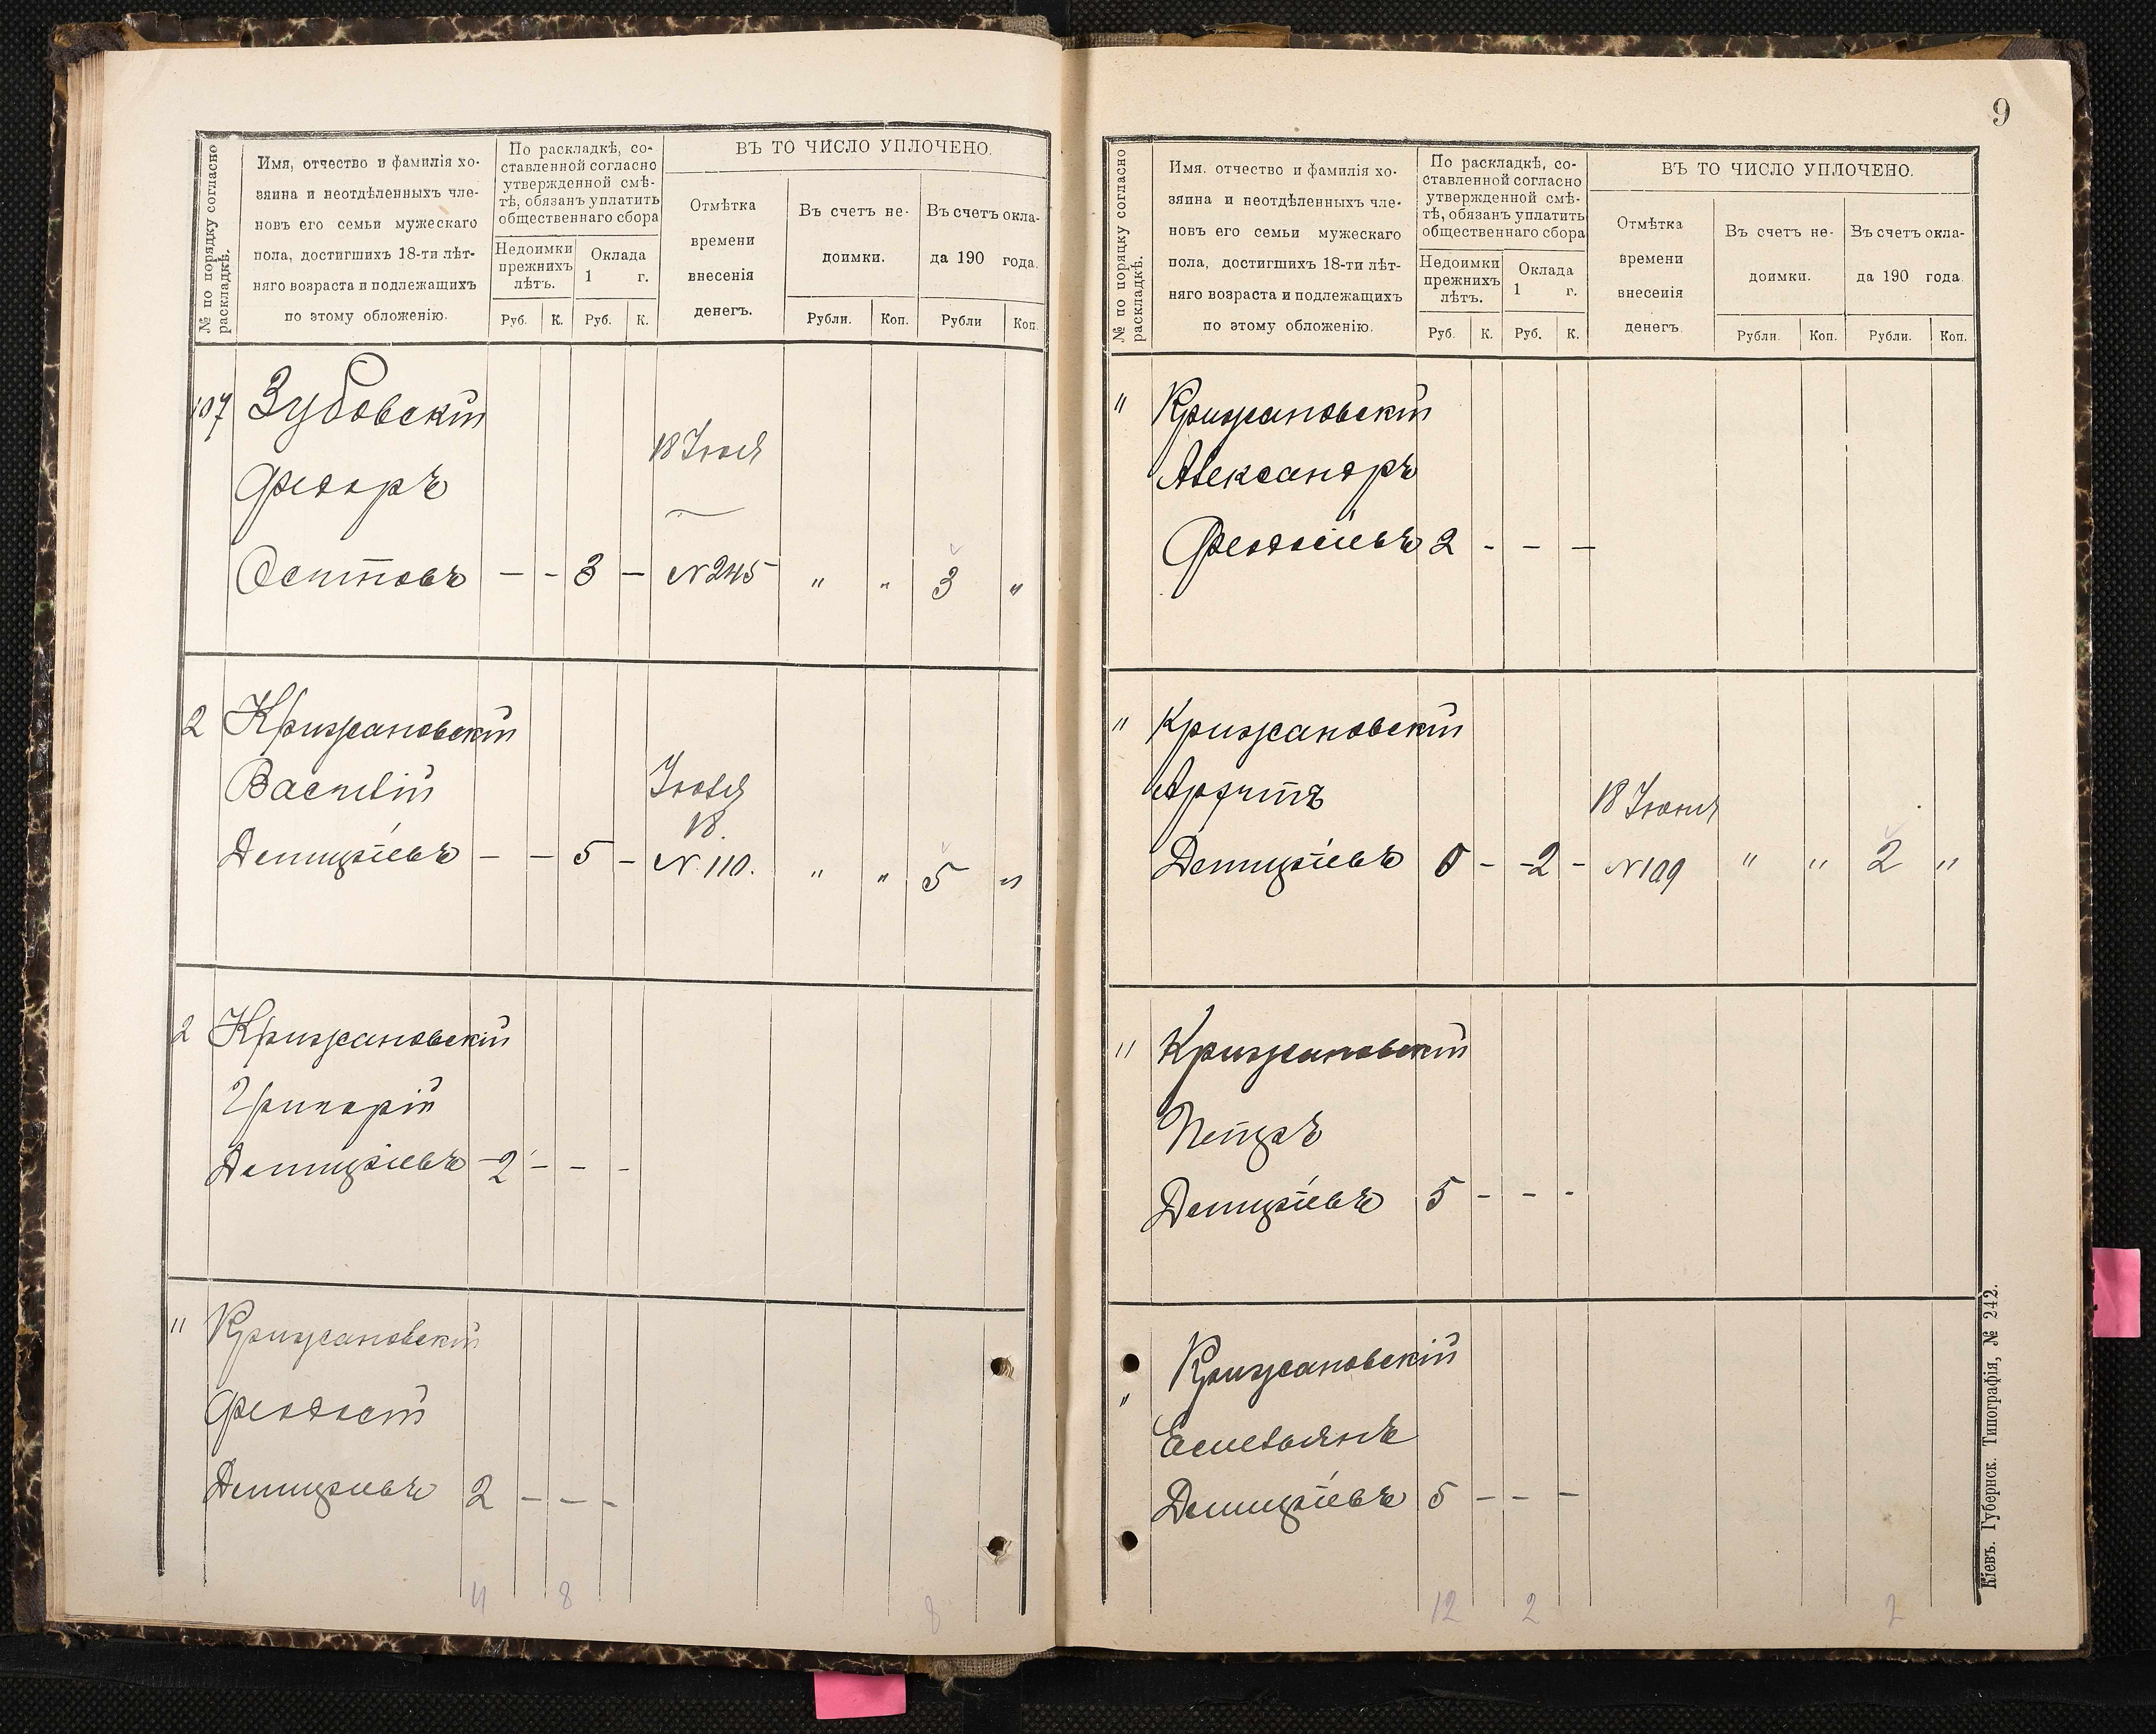 9
№ по порядку согласно раскладкѣ.
Имя, отчество и фамилія хо-
зяина и неотдѣленныхъ чле-
новъ его семьи мужескаго
пола, достигшихъ 18-ти лѣт-
няго возраста и подлежащихъ
по этому обложенію.
По раскладкѣ, со-
ставленной согласно
утвержденной смѣ-
тѣ, обязанъ уплатить
общественнаго сбора
Недоимки
прежнихъ
лѣтъ.
Оклада
1 г.
Руб. К. Руб. К.
ВЪ ТО ЧИСЛО УПЛОЧЕНО.
Отмѣтка
времени
внесенія
денегъ.
Въ счетъ не-
доимки.
Въ счетъ окла-
да 190 года.
Рубли. Коп. Рубли Коп.
107 Зубовскій
Федоръ
18 Іюля
Осиповъ — - 3 — №245 " " 3 "
2 Крижановскій
Василій
Іюля
18.
Дмитріевъ — — 5 — № 110. " " 5 "
2 Крижановскій
Григорій
Дмитріевъ 2 — — -
" Крижановскій
Феодосій
Дмитріевъ 2 — — -
4 8 8
№ по порядку согласно раскладкѣ.
Имя. отчество и фамилія хо-
зяина и неотдѣленныхъ чле-
новъ его семьи мужескаго
пола, достигшихъ 18-ти лѣт-
няго возраста и подлежащихъ
по этому обложенію.
По раскладкѣ, со-
ставленной согласно
утвержденной смѣ-
тѣ, обязанъ уплатить
общественнаго сбора
Недоимки
прежнихъ
лѣтъ.
Оклада
1 г.
Руб. К. Руб. К.
ВЪ ТО ЧИСЛО УПЛОЧЕНО.
Отмѣтка
времени
внесенія
денегъ.
Въ счетъ не-
доимки.
Въ счетъ окла-
да 190 года.
Рубли. Коп. Рубли. Коп.
" Крижановскій
Александръ
Феодосіевъ 2 - — —
" Крижановскій
18 Іюля
Дмитріевъ 0 - 2 - №109 " " 2 "
" Крижановскій
Петръ
Дмитріевъ 5 - - -
" Крижановскій
Емельянъ
Дмитріевъ 5 — — —
12 2 2
Кіевъ. Губернск. Типографія, № 242.